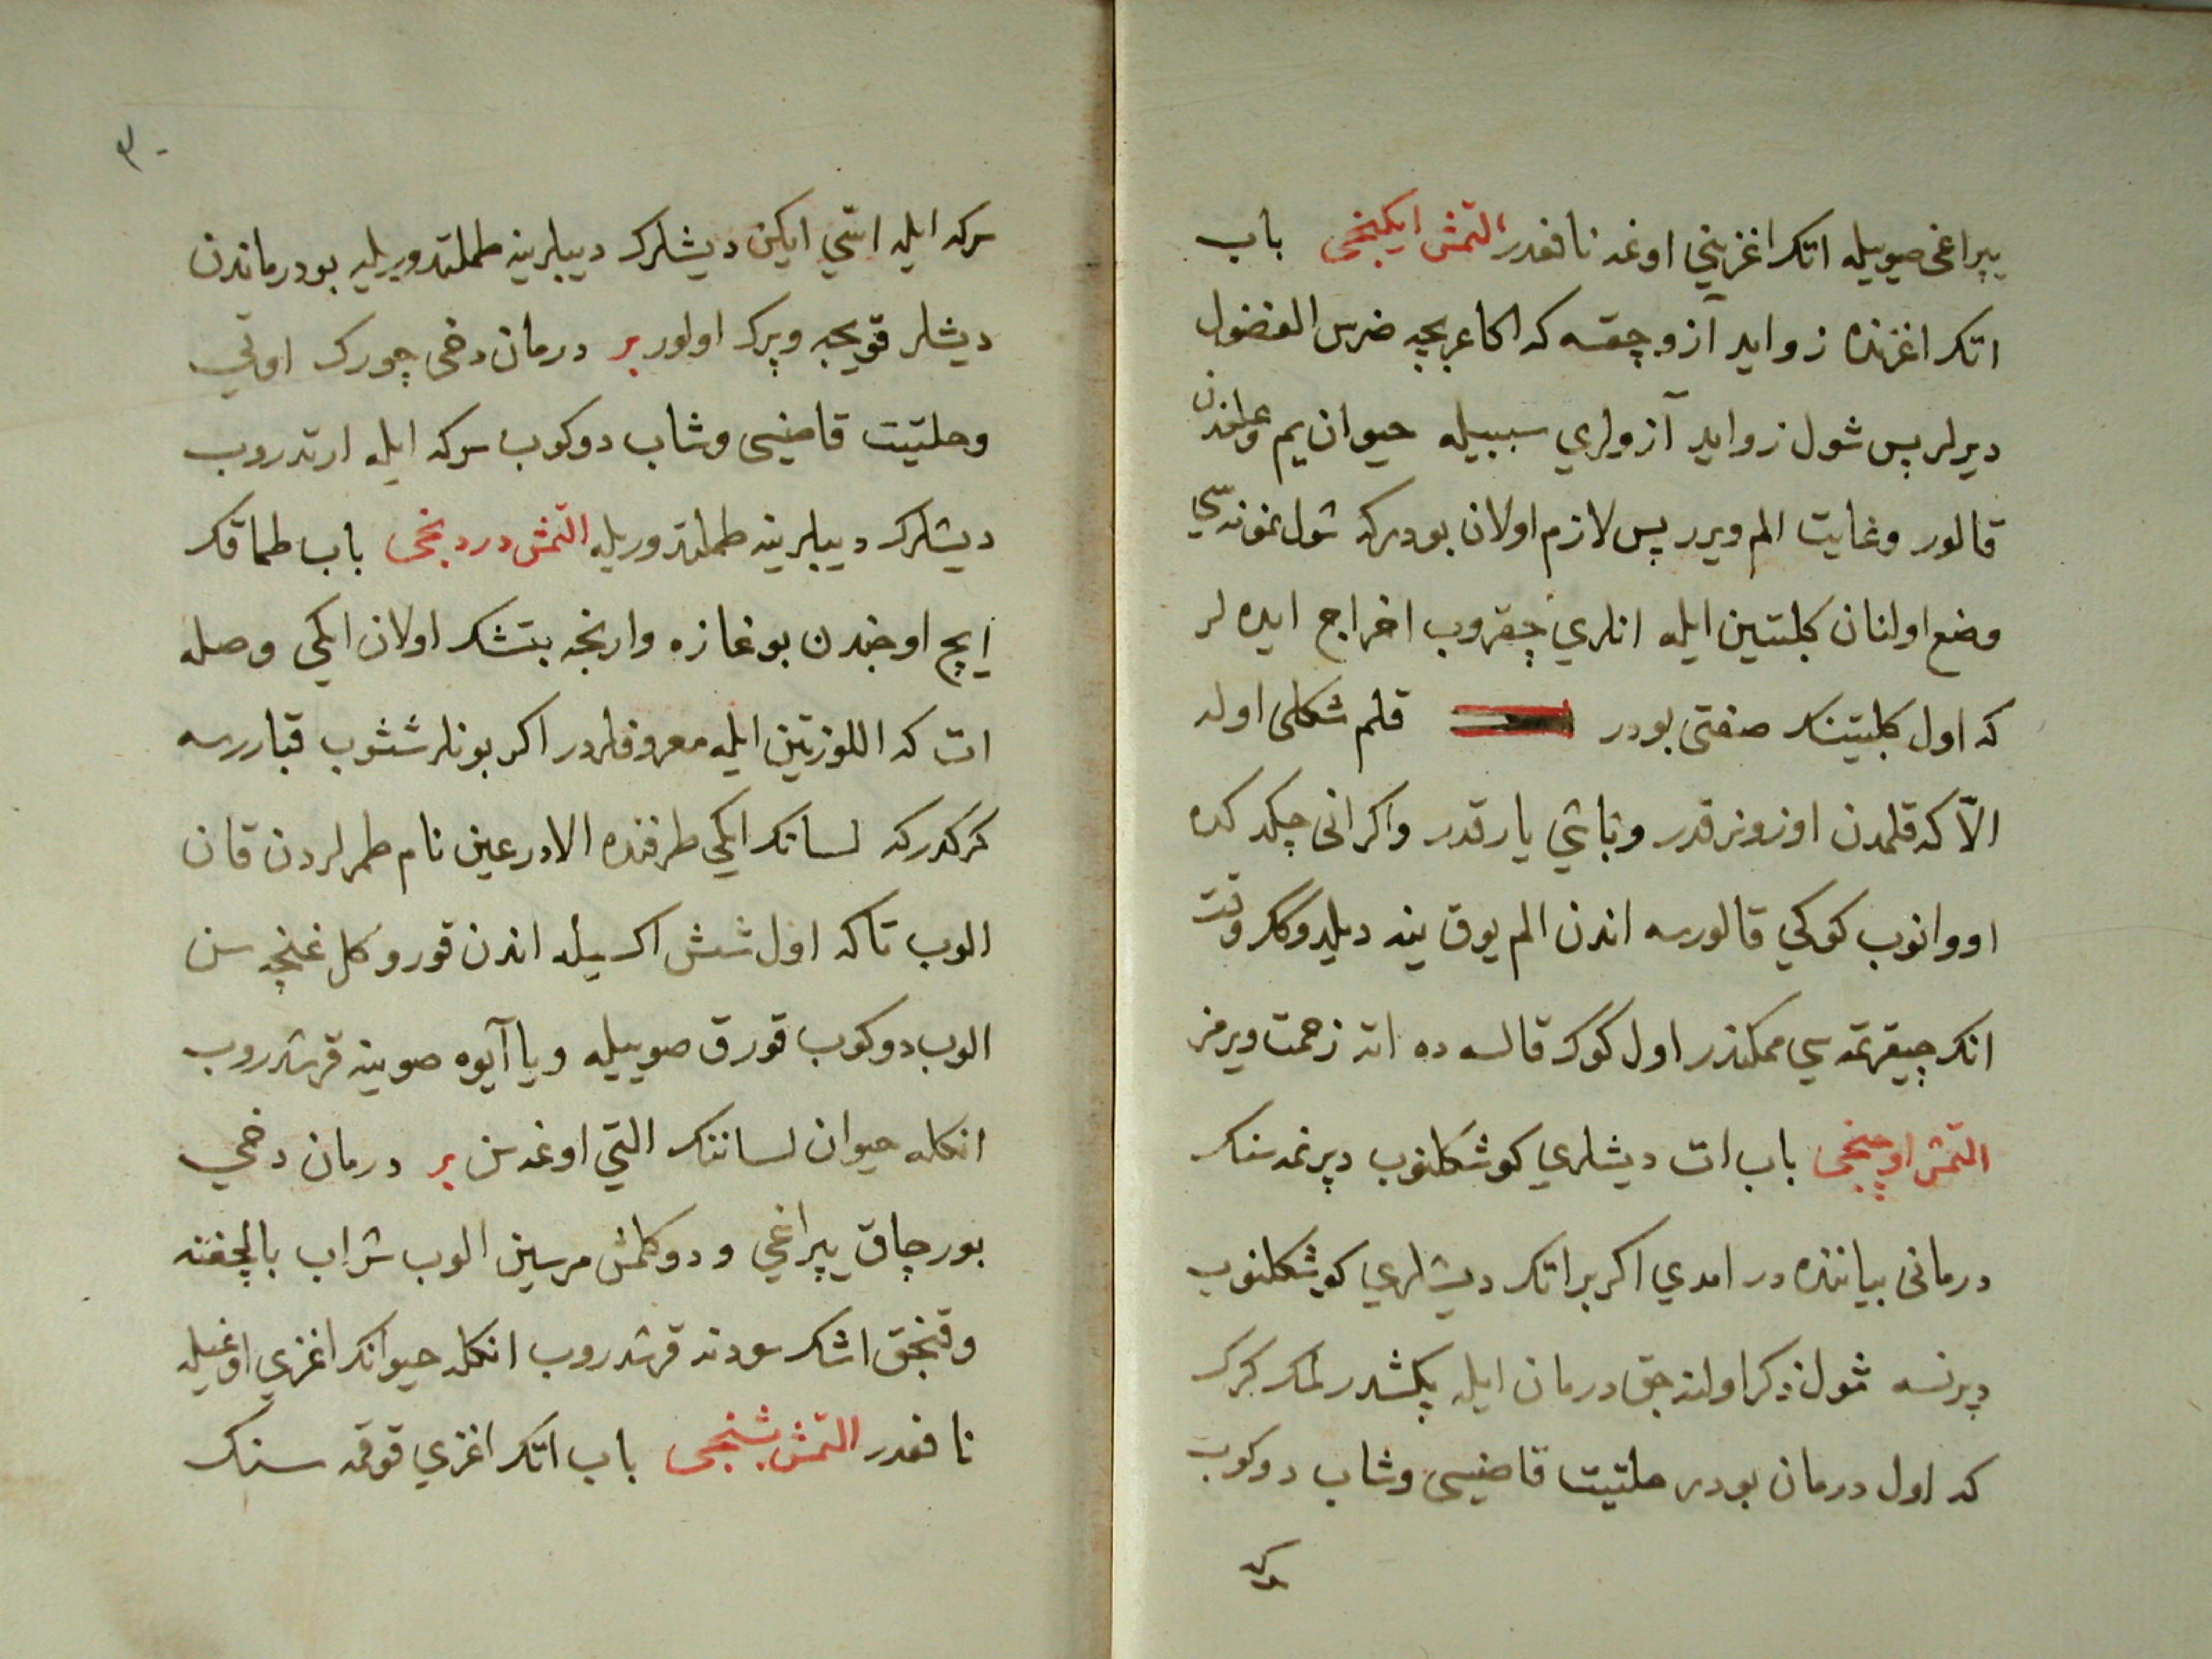 يپراغی صوييله اتك اغزينی اوغه نافعدر التمش ايكنجی باب
اتك اغزنده زوايد آزو چقسه كه اكا عربجه ضرس الفضول
ديرلر پس شول زوايد آزولري سببيله حيوان يم وعلفدن
قالور وغايت الم ويرر پس لازم اولان بودركه شول نمونه سی
وضع اولنان كلبتين ايله انلري چقروب اخراج ايده لر
كه اول كلبتينك صفتی بودر قلم شكلی اوله
الّا كه قلمدن اوزونرقدر وباشي يارقدر واكر انی چكدكده
اووانوب كوكي قالورسه اندن الم يوق ينه ديلدوكك وقت
انك چيقرتمه سي ممكندر اول كوك قالسه ده اته زحمت ويرمز
التمش اوچنجی باب ات ديشلري كوشكلنوب دپرنمه سنك
درمانی بياننده در امدي اكر بر اتك ديشلري كوشكلنوب
دپرنسه شول ذكر اولنه جق درمان ايله پكشدرلمك كرك
كه اول درمان بودر حلتيت قاضيسی وشاب دوكوب
سركه
٣٠
سركه ايله اسّي ايكن ديشلرك ديبلرينه طملتدوريله بو درماندن
ديشلر قويجه وپرك اولور بر درمان دخی چورك اوتي
وحلتيت قاضيسی وشاب دوكوب سركه ايله ارتدروب
ديشلرك ديبلرينه طملتدوريله التمش دردنجی باب طماقك
ايچ اوجندن بوغازه وارنجه بتشك اولان ايكي وصله
ات كه اللوزتين ايله معروفلردر اكر بونلر ششوب قباررسه
كركدركه لسانك ايكي طرفنده الادرعين نام طمرلردن قان
الوب تاكه اول شش اكسيله اندن قورو كل غنچه سن
الوب دوكوب قورق صوييله ويا آيوه صوينه قرشدروب
انكله حيوان لساننك التي اوغه سن بر درمان دخي
بورچاق يپراغي ودوكلمش مرسين الوب شراب بالچغنه
وقنجق اشك سودنه قرشدروب انكله حيوانك اغزي اوغيله
نافعدر التمش بشنجی باب اتك اغزي قوقمه سنك